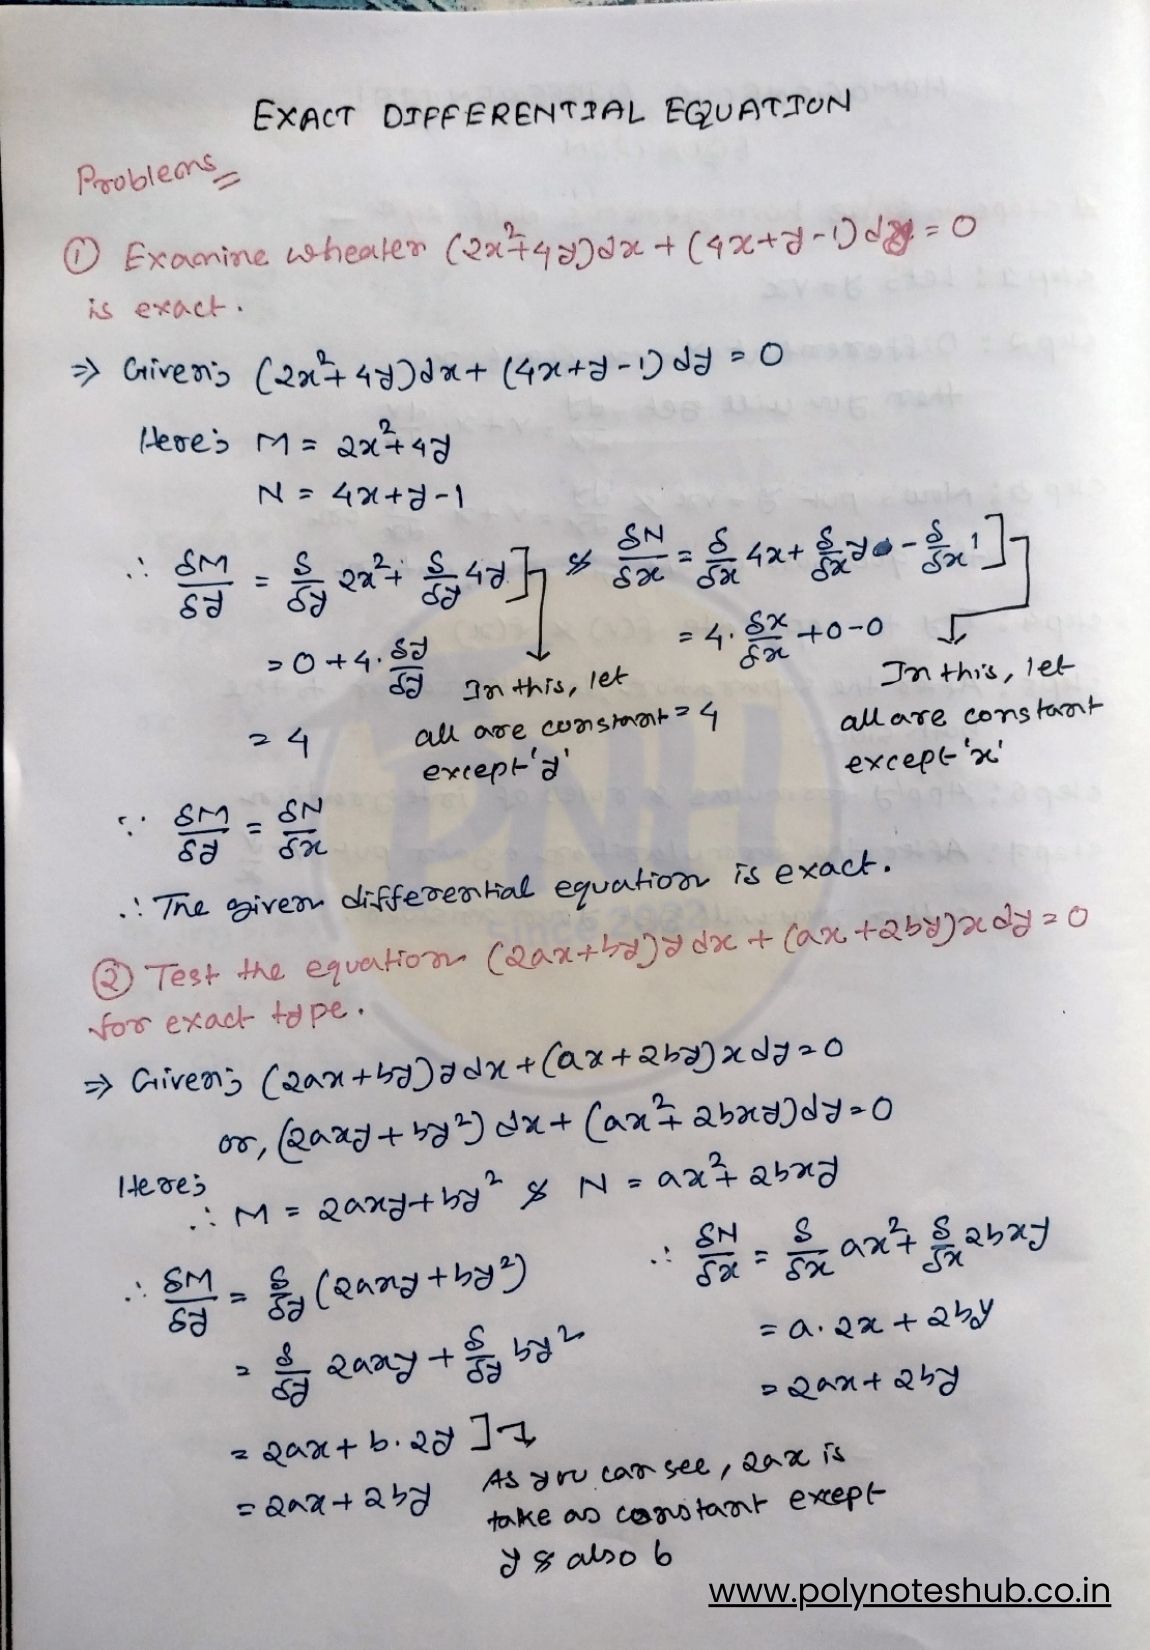 EXACT DIFFERENTIAL EQUATION
Problems
① Examine wheater (2x²+4y)dx + (4x+y-1)dy = 0
is exact.
⇒ Given; (2x²+4y)dx + (4x+y-1)dy = 0
Here; M = 2x²+4y
N = 4x+y-1
∴ δM/δy = δ/δy 2x² + δ/δy 4y] & δN/δx = δ/δx 4x + δ/δx y - δ/δx 1]
= 0 + 4. δy/δy
= 4
In this, let
all are constant
except 'y'
= 4. δx/δx + 0 - 0
= 4
In this, let
all are constant
except 'x'
∵ δM/δy = δN/δx
∴ The given differential equation is exact.
② Test the equation (2ax+by)y dx + (ax+2by)x dy = 0
for exact type.
⇒ Given; (2ax+by)y dx + (ax+2by)x dy = 0
or, (2axy+by²) dx + (ax²+2bxy)dy = 0
Here;
∴ M = 2axy+by² & N = ax²+2bxy
∴ δM/δy = δ/δy (2axy+by²)
= δ/δy 2axy + δ/δy by²
= 2ax + b. 2y ]
= 2ax + 2by
As you can see, 2ax is
take as constant except
y & also b
∴ δN/δx = δ/δx ax² + δ/δx 2bxy
= a. 2x + 2by
= 2ax + 2by
PNH
Since 2022
www.polynoteshub.co.in